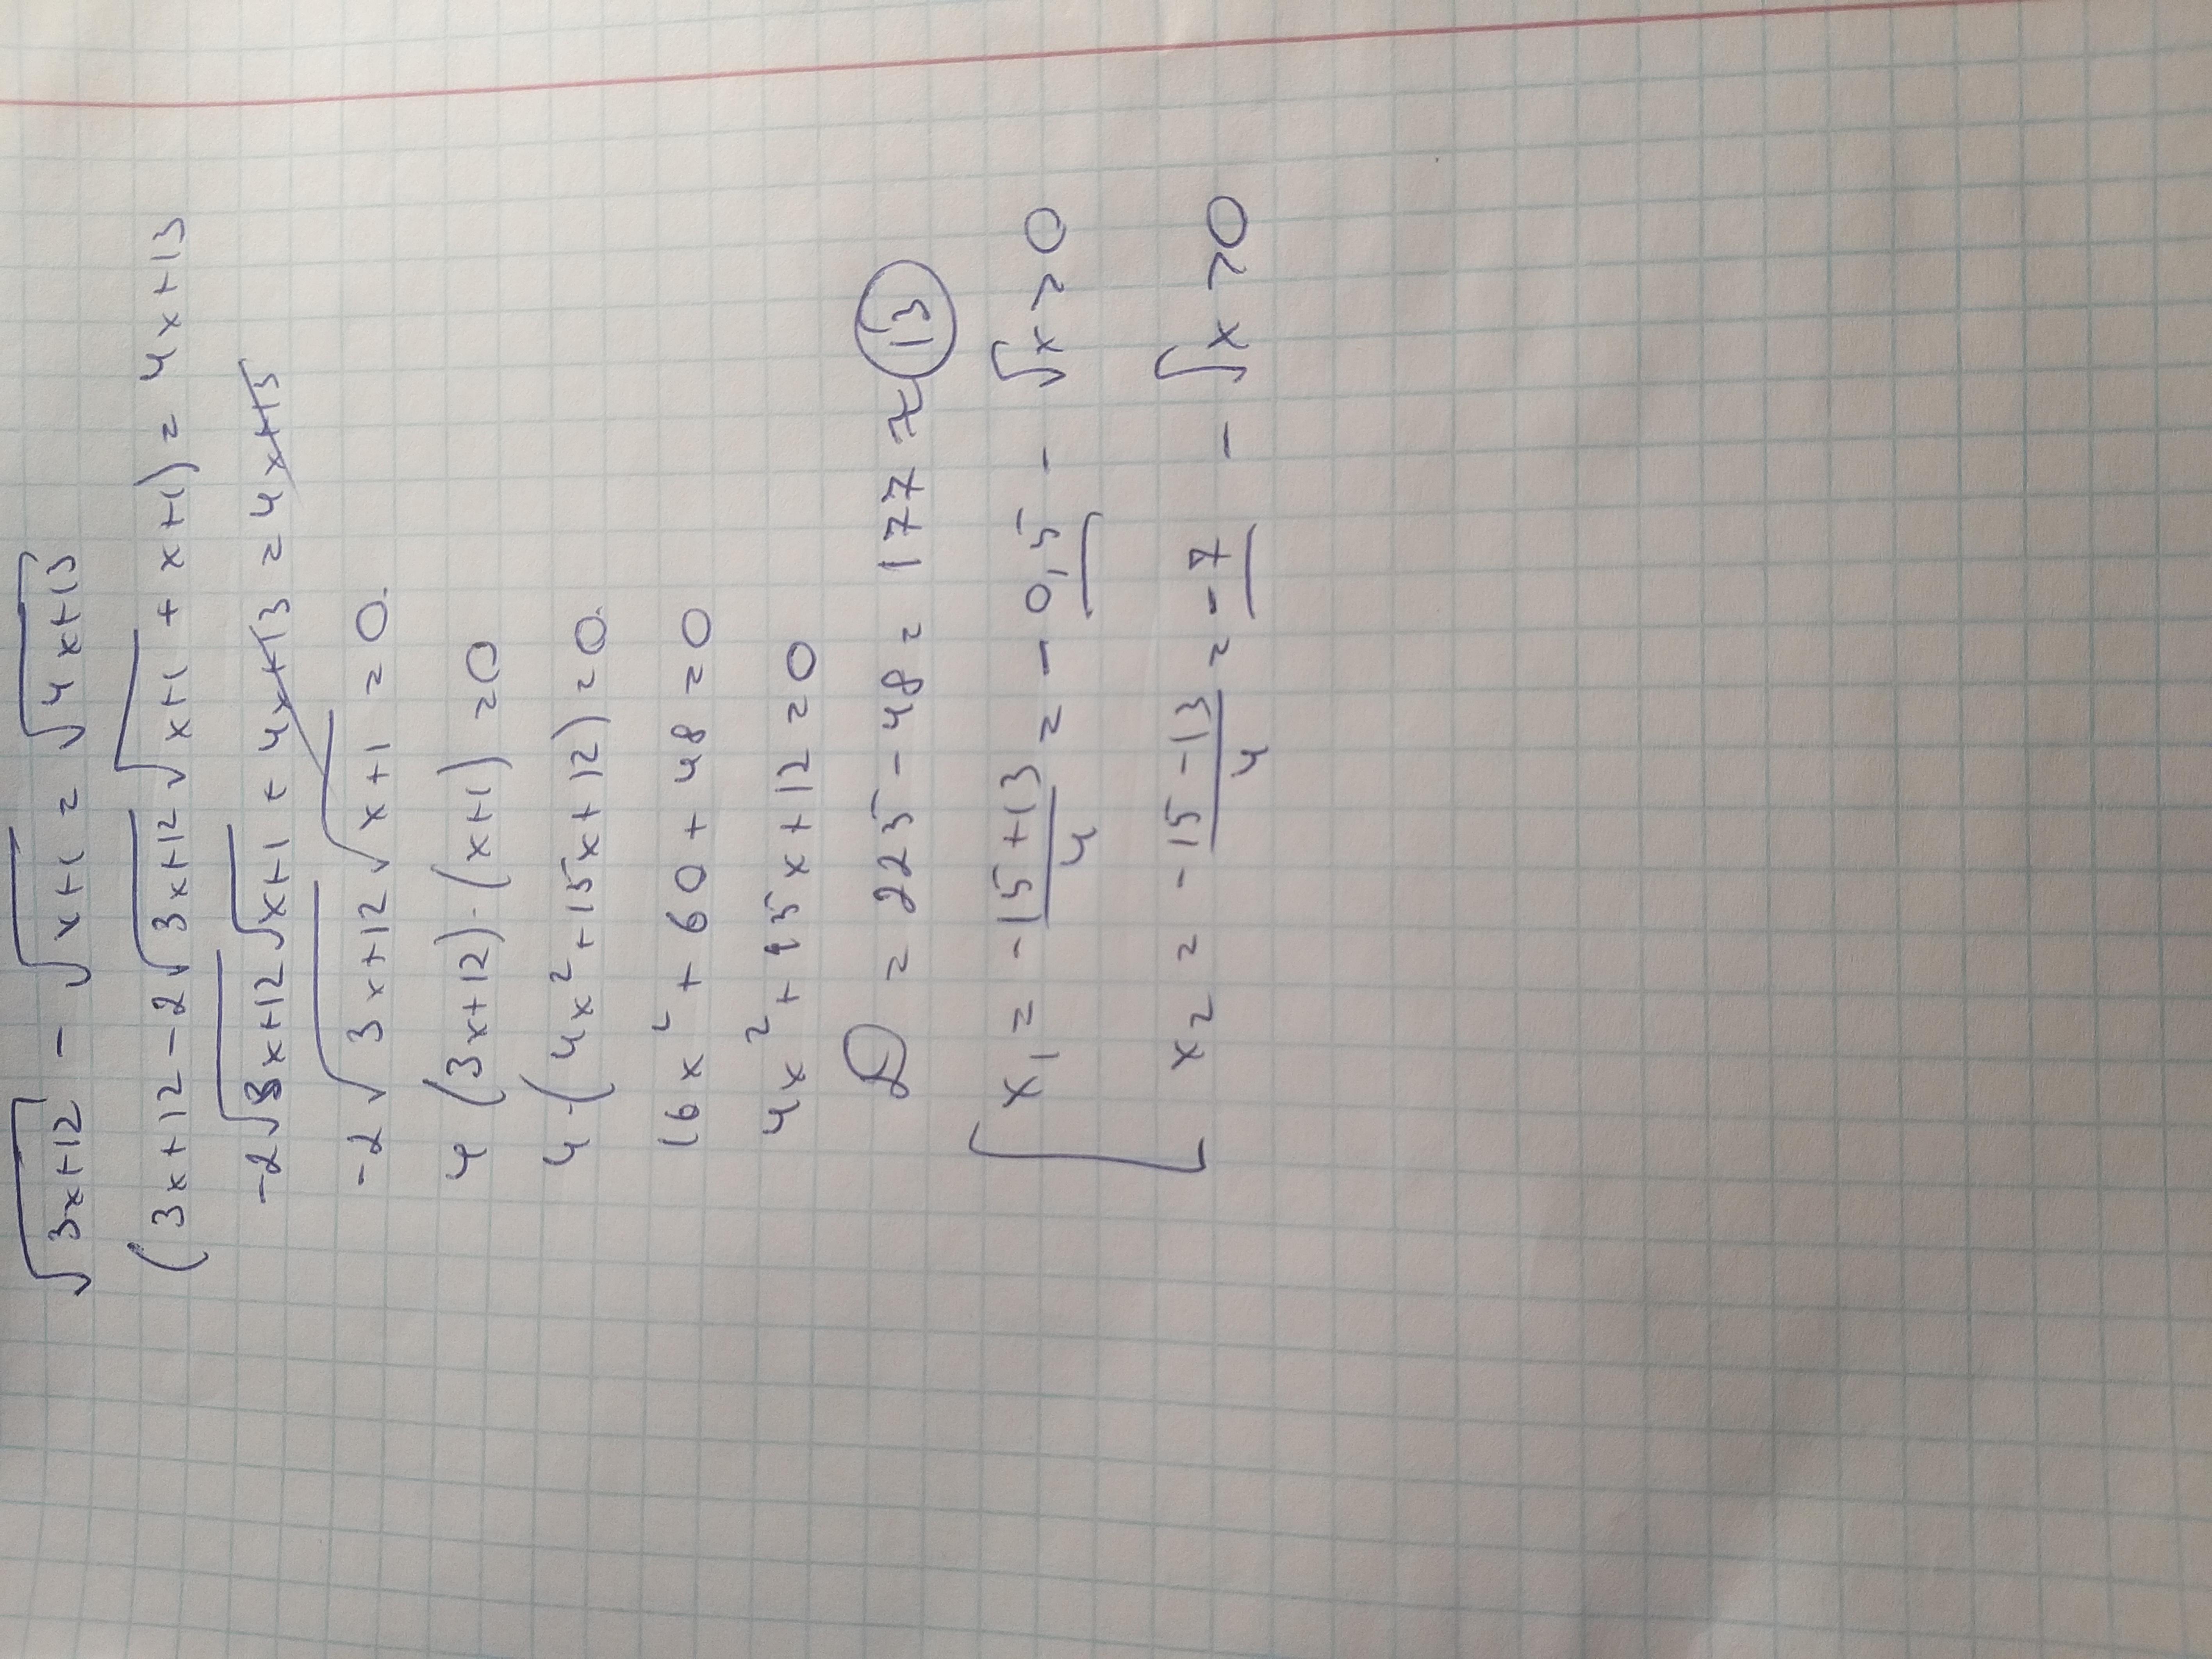 √3x+12 - √x+1 = √4x+13
(3x+12-2√3x+12 √x+1 + x+1) = 4x+13
-2√3x+12 √x+1 + 4x+13 = 4x+13
-2√3x+12 √x+1 = 0
4(3x+12)·(x+1) = 0
4·(4x²+15x+12) = 0
16x² + 60 + 48 = 0
4x² + 15x+12 = 0
D = 225-48 = 177 ≈ 13
x1 = -15+13/4 = -0,5 - √x > 0
x2 = -15-13/4 = -7 - √x > 0